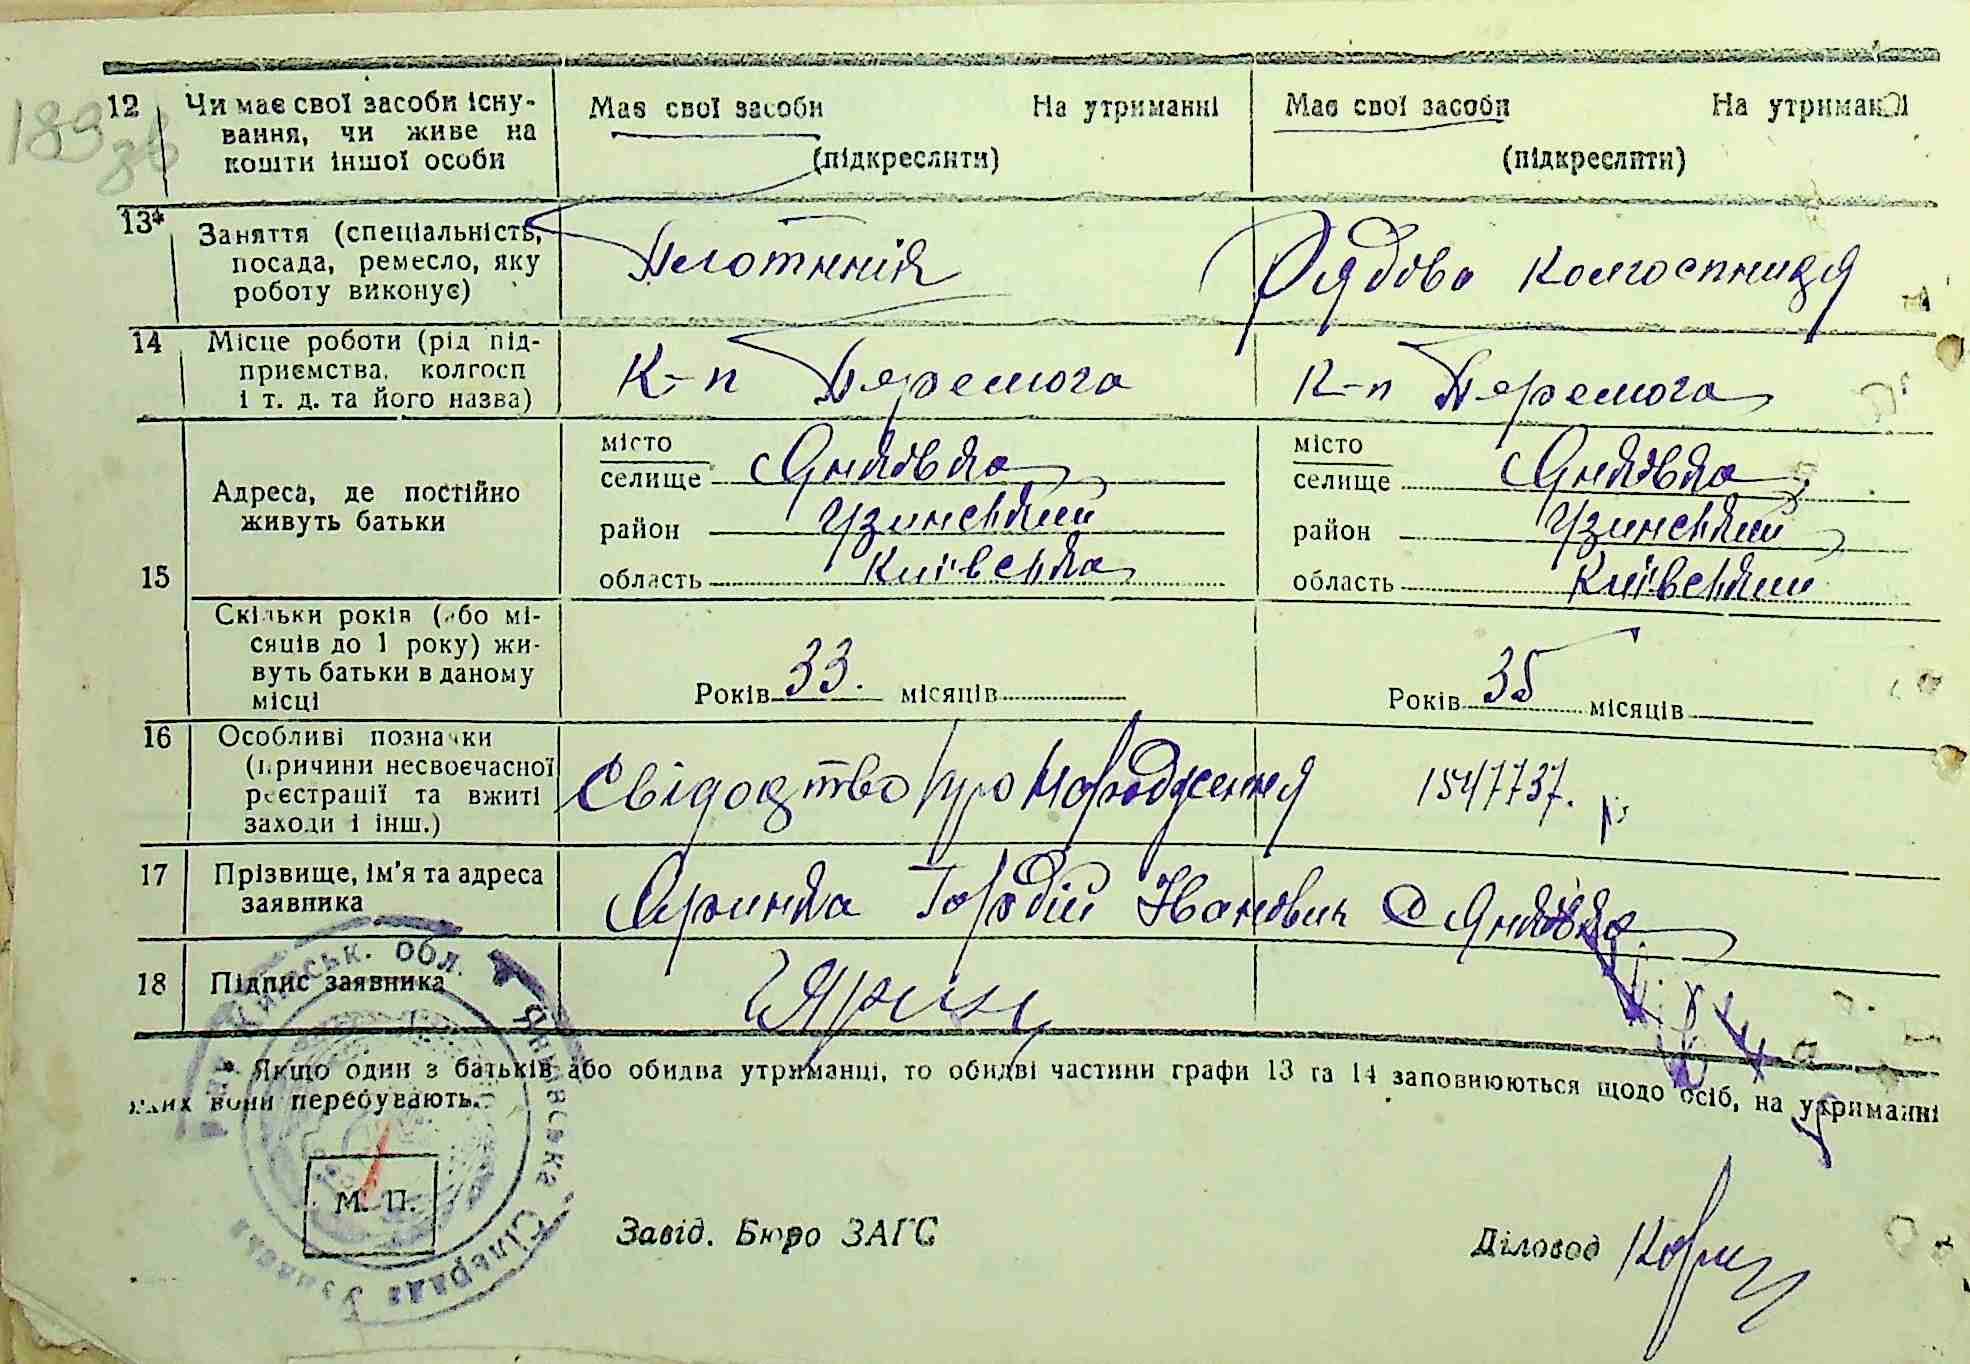 189 зв
12 Чи має свої засоби існу-
вання, чи живе на
кошти іншої особи
Має свої засоби На утриманні
(підкреслити)
Має свої засоби На утриманні
(підкреслити)
13* Заняття (спеціальність,
посада, ремесло, яку
роботу виконує)
Плотник
Рядова колгоспниця
14 Місце роботи (рід під-
приємства, колгосп
і т. д. та його назва)
К-п Перемога
К-п Перемога
15 Адреса, де постійно
живуть батьки
місто
селище с Яньківка
район Узинський
область Київська
місто
селище с Яньківка
район Узинський
область Київський
Скільки років (або мі-
сяців до 1 року) жи-
вуть батьки в даному
місці
Років 33. місяців
Років 35 місяців
16 Особливі позначки
(причини несвоєчасної
реєстрації та вжиті
заходи і інш.)
Свідоцтво про народження 1547737.
17 Прізвище, ім'я та адреса
заявника
Яринка Гордій Іванович с Яньківка
18 Підпис заявника
* Якщо один з батьків або обидва утриманці, то обидві частини графи 13 та 14 заповнюються щодо осіб, на утриманні
яких вони перебувають.
М. П.
Завід. Бюро ЗАГС
Діловод
Київськ. обл. Яньківська Сільрада Узинськ